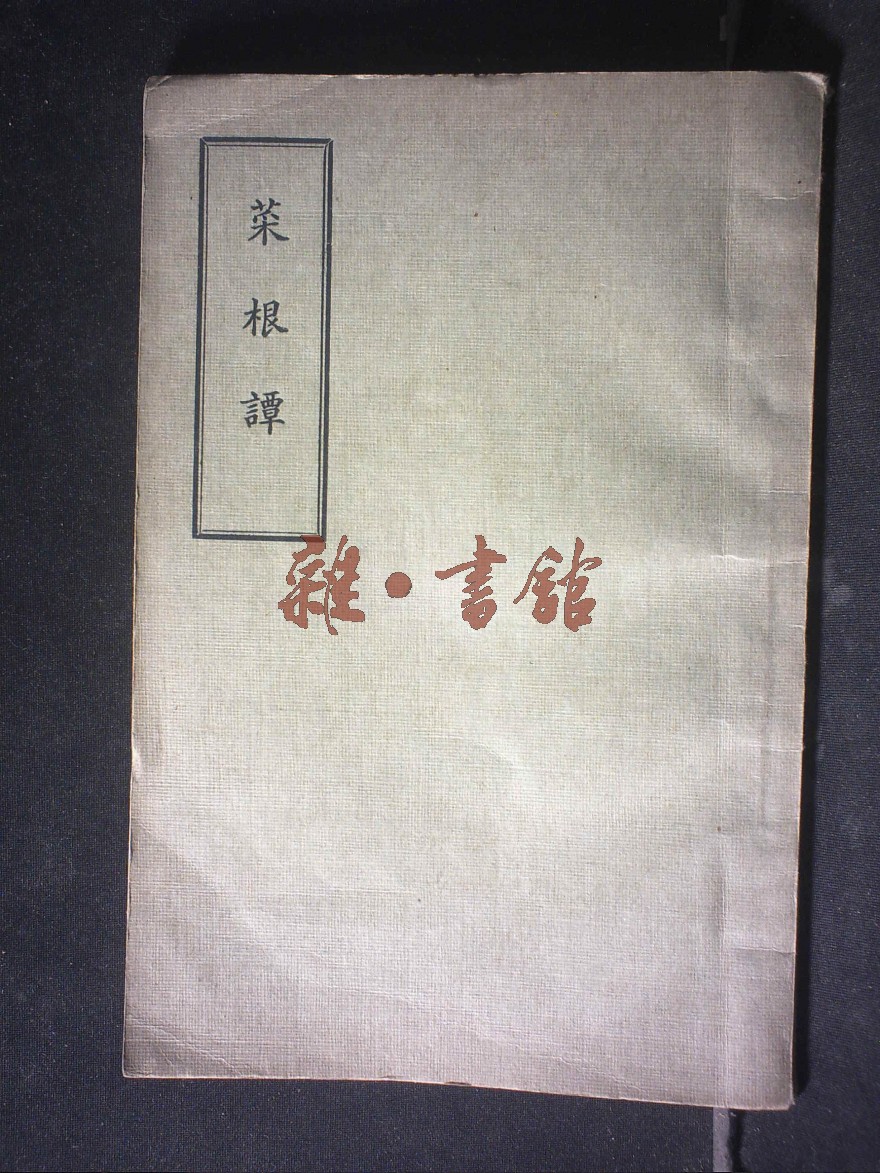 菜根譚
雜·書館